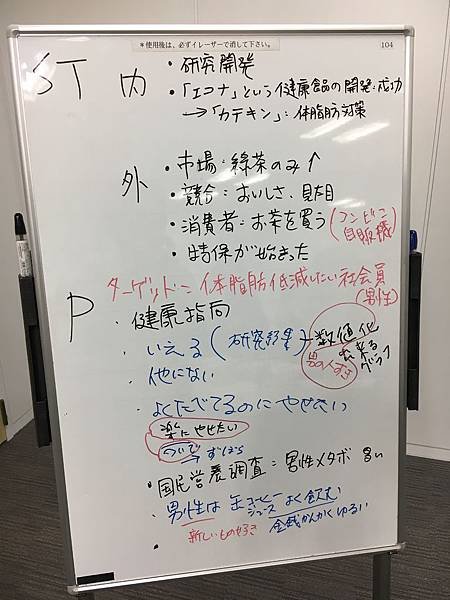 *使用後は、必ずイレーザーで消して下さい。
104
ST 内 ・研究開発
・「エコナ」という健康食品の開発:成功
→「カテキン」:体脂肪対策
外 ・市場:緑茶のみ↑
・競合:おいしさ、見た目
・消費者:お茶を買う(コンビニ 自販機)
・特保が始まった
ターゲット=体脂肪低減したい社会員(男性)
P ・健康指向
・いえる(研究結果)→数値化 出来る グラフ
男の人すき
・他にない
・よくたべてるのにやせたい
楽にやせたい
ついで→ずぼら
・国民営養調査:男性メタボ多い
・男性は缶コーヒー ジュース よく飲む
新しいもの好き 金銭かんかくゆるい